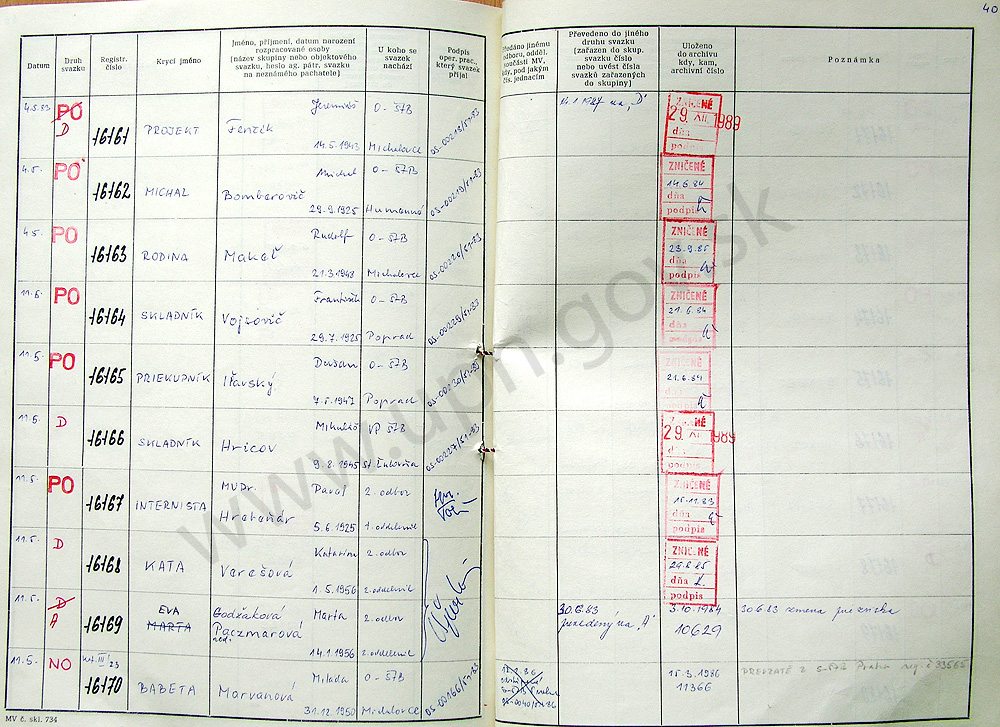 40
Datum
Druh svazku
Registr. číslo
Krycí jméno
Jméno, příjmení, datum narození
rozpracované osoby
[název skupiny nebo objektového
svazku, heslo ag. pátr. svazku
na neznámého pachatele]
U koho se
svazek
nachází
Podpis
oper. prac.,
který svazek
přijal
Předáno jinému
odboru, odděl.
součásti MV,
kdy, pod jakým
čís. jednacím
Převedeno do jiného
druhu svazku
[zařazen do skup.
svazku číslo
nebo uvést čísla
svazků zařazených
do skupiny]
Uloženo
do archivu
kdy, kam,
archivní číslo
Poznámka
4.5.83 PO D 16161 PROJEKT Jeremiáš O-ŠTB
14.5.1943 Michalovce OS-00218/51-83
ZNIČENÉ 29 XII. 1989 dňa podpis
4.5. PO 16162 MICHAL Michal O-ŠTB
Bomberovič
29.9.1925 Humenné OS-00219/51-83
ZNIČENÉ 14.6.84 dňa podpis
4.5. PO 16163 RODINA Rudolf O-ŠTB
Makeľ
21.3.1948 Michalovce OS-00220/51-83
ZNIČENÉ 23.9.85 dňa podpis
11.5. PO 16164 SKLADNÍK František O-ŠTB
Vojtovič
29.7.1925 Poprad OS-00229/51-83
ZNIČENÉ 21.6.84 dňa podpis
11.5. PO 16165 PRIEKUPNÍK Dušan O-ŠTB
Iľavský
1947 Poprad OS-00230/51-83
ZNIČENÉ 21.6.84 dňa podpis
11.5. D 16166 SKLADNÍK Mikuláš VP ŠTB
Hricov
9.8.1945 St. Ľubovňa OS-00227/51-83
ZNIČENÉ 29 XII. 1989 dňa podpis
11.5. PO 16167 INTERNISTA MUDr. Pavol 2. odbor
Hrebenár
5.6.1925 1. oddelenie
ZNIČENÉ 15.11.83 dňa podpis
11.5. D 16168 KATA Katarína 2. odbor
Verešová
1.5.1956 2. oddelenie
ZNIČENÉ 29.8.85 dňa podpis
11.5. D A 16169 EVA MARTA Godžáková Marta 2. odbor
Paczmarová
14.1.1956 2. oddelenie
30.6.83 prevedený na "A"
3.10.1984
10629
30.6.83 zmena priezviska
11.5. NO 16170 BABETA Milada O-ŠTB
Morvanová
31.12.1950 Michalovce OS-00166/51-83
15.3.1986
11366
PREVZATÉ Z S-ŠTB Praha reg. č 33565
MV č. skl. 734
www.upn.gov.sk